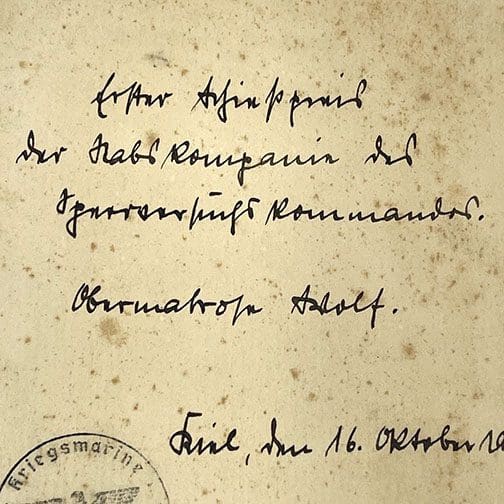 Erster Schießpreis
der Stabskompanie des
Sperrversuchskommandos.
Obermatrose Wolf.
Kiel, den 16. Oktober 19
Kriegsmarine